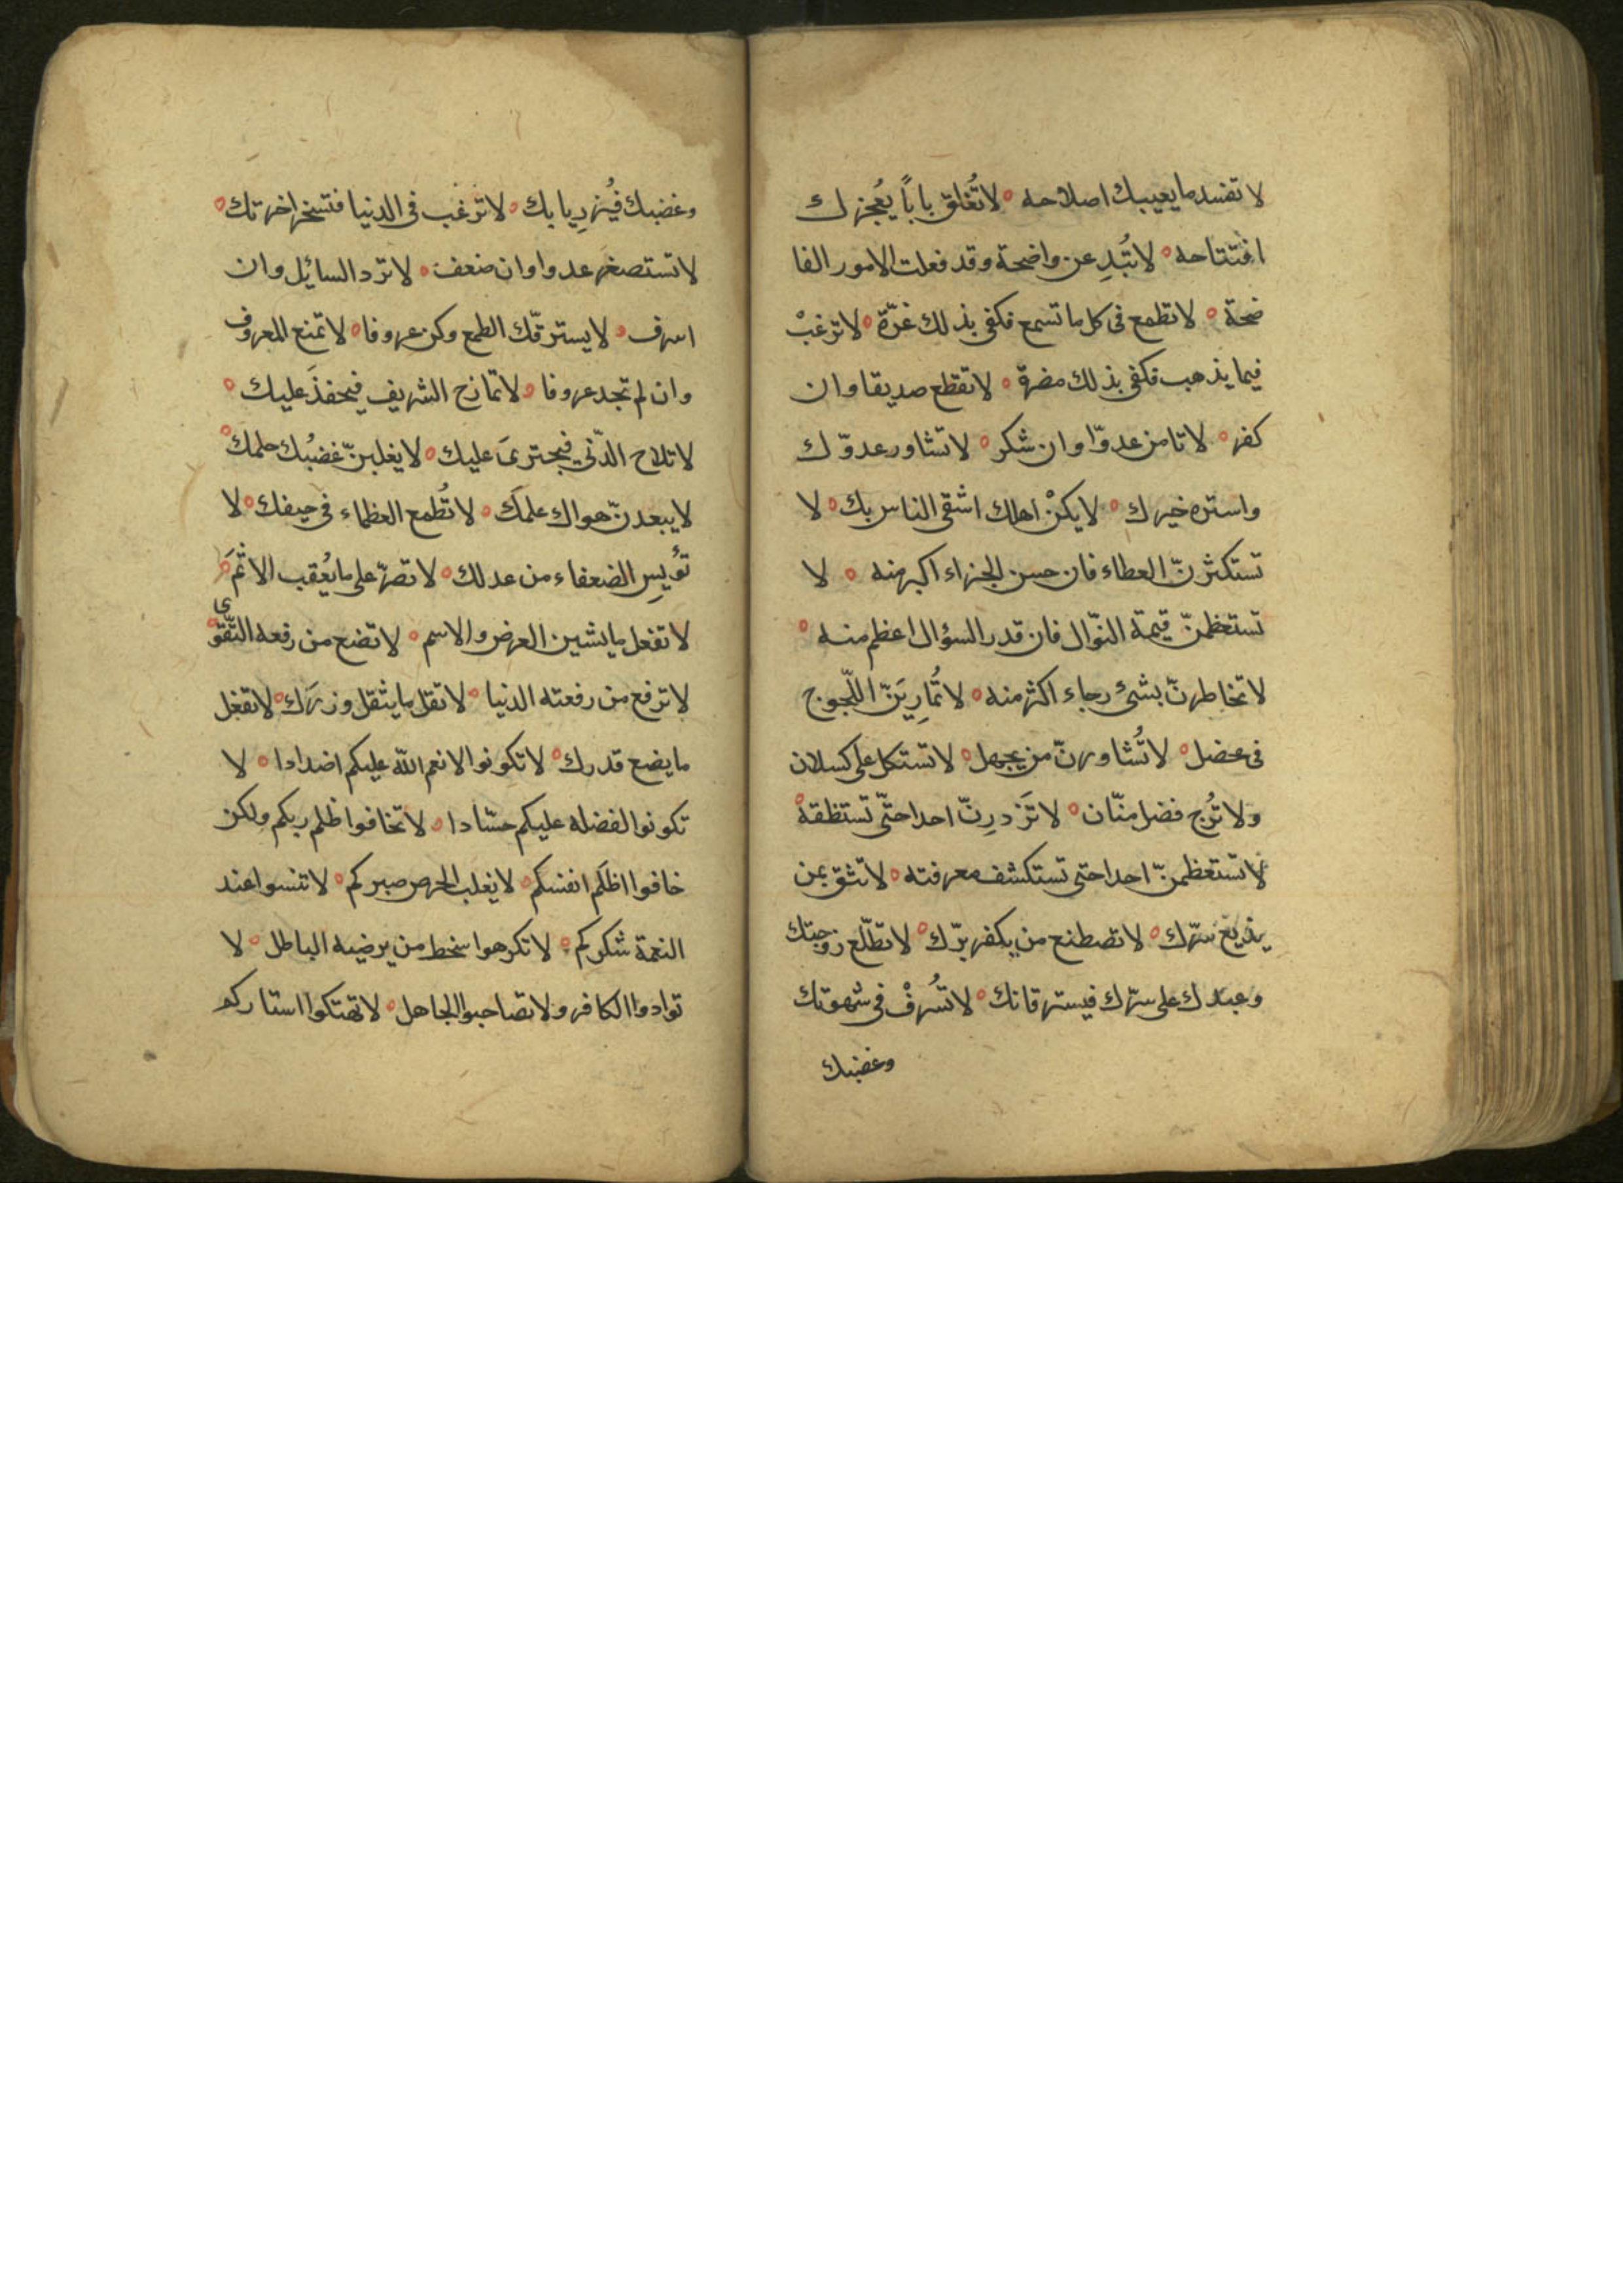 لا تفسد ما يعييك اصلاحه ه لا تُغلق باباً يُعجزك
افتتاحه ه لا تُبدِ عن واضحة وقد فعلت الامور الفا
ضحة ه لا تطمع فى كل ما تسمع فكفى بذلك غرّة ه لا ترغبْ
فيما يذهب فكفى بذلك مضرة ه لا تقطع صديقا وان
كفر ه لا تامن عدوّا وان شكر ه لا تشاور عدوّك
واستره خيرك ه لا يكنْ اهلك اشقى الناس بك ه لا
تستكثرنّ العطاء فان حسن الجزاء اكبر منه ه لا
تستعظمنّ قيمة النّوال فان قدر السؤال اعظم منه ه
لا تخاطرنّ بشئ رجاء اكثر منه ه لا تُمارِيَنّ اللّجوج
فى محضل ه لا تُشاورنّ من يجهل ه لا تستكل على كسلان
ولا تُرج فضل منّان ه لا تَزدرِنّ احدا حتّى تستنطقه ه
لا تستعظمنّ احدا حتى تستكشف معرفته ه لا تثق بمن
يذيع سرّك ه لا تصطنع من يكفر برّك ه لا تطّلع زوجتك
وعبدك على سرّك فيسترقانك ه لا تُسرفْ فى شهوتك
وغضبك
وغضبك فيُزرِيا بك ه لا ترغب فى الدنيا فتخسر اخرتك ه
لا تستصغر عدوا وان ضعف ه لا ترد السائل وان
اسرف ه لا يسترقّك الطمع وكن عزوفا ه لا تمنع المعروف
وان لم تجد عروفا ه لا تمازح الشريف فيحفذَ عليك ه
لا تلاح الدّني فيجترىَ عليك ه لا يغلبنّ غضبُك حلمك ه
لا يبعدنّ هواك علمَك ه لا تُطمع العظماء فى حيفك ه لا
تؤيسِ الضعفاء من عدلك ه لا تصرّ على ما يُعقب الاثمَ
لا تفعل ما يشين العرض والاسم ه لا تضع من رفعه التّقوى ه
لا ترفع من رفعته الدنيا ه لا تقل ما يثقل وزرَك ه لا تفعل
ما يضع قدرك ه لا تكونوا لانعم الله عليكم اضدادا ه لا
تكونوا لفضله عليكم حسّادا ه لا تخافوا ظلم ربكم ولكن
خافوا اظلَم انفسكم ه لا يغلب الحرص صبركم ه لا تنسوا عند
النعمة شكركم ه لا تكرهوا سخط من يرضيه الباطل ه لا
توادوا الكافر ولا تصاحبوا الجاهل ه لا تهتكوا استاركم